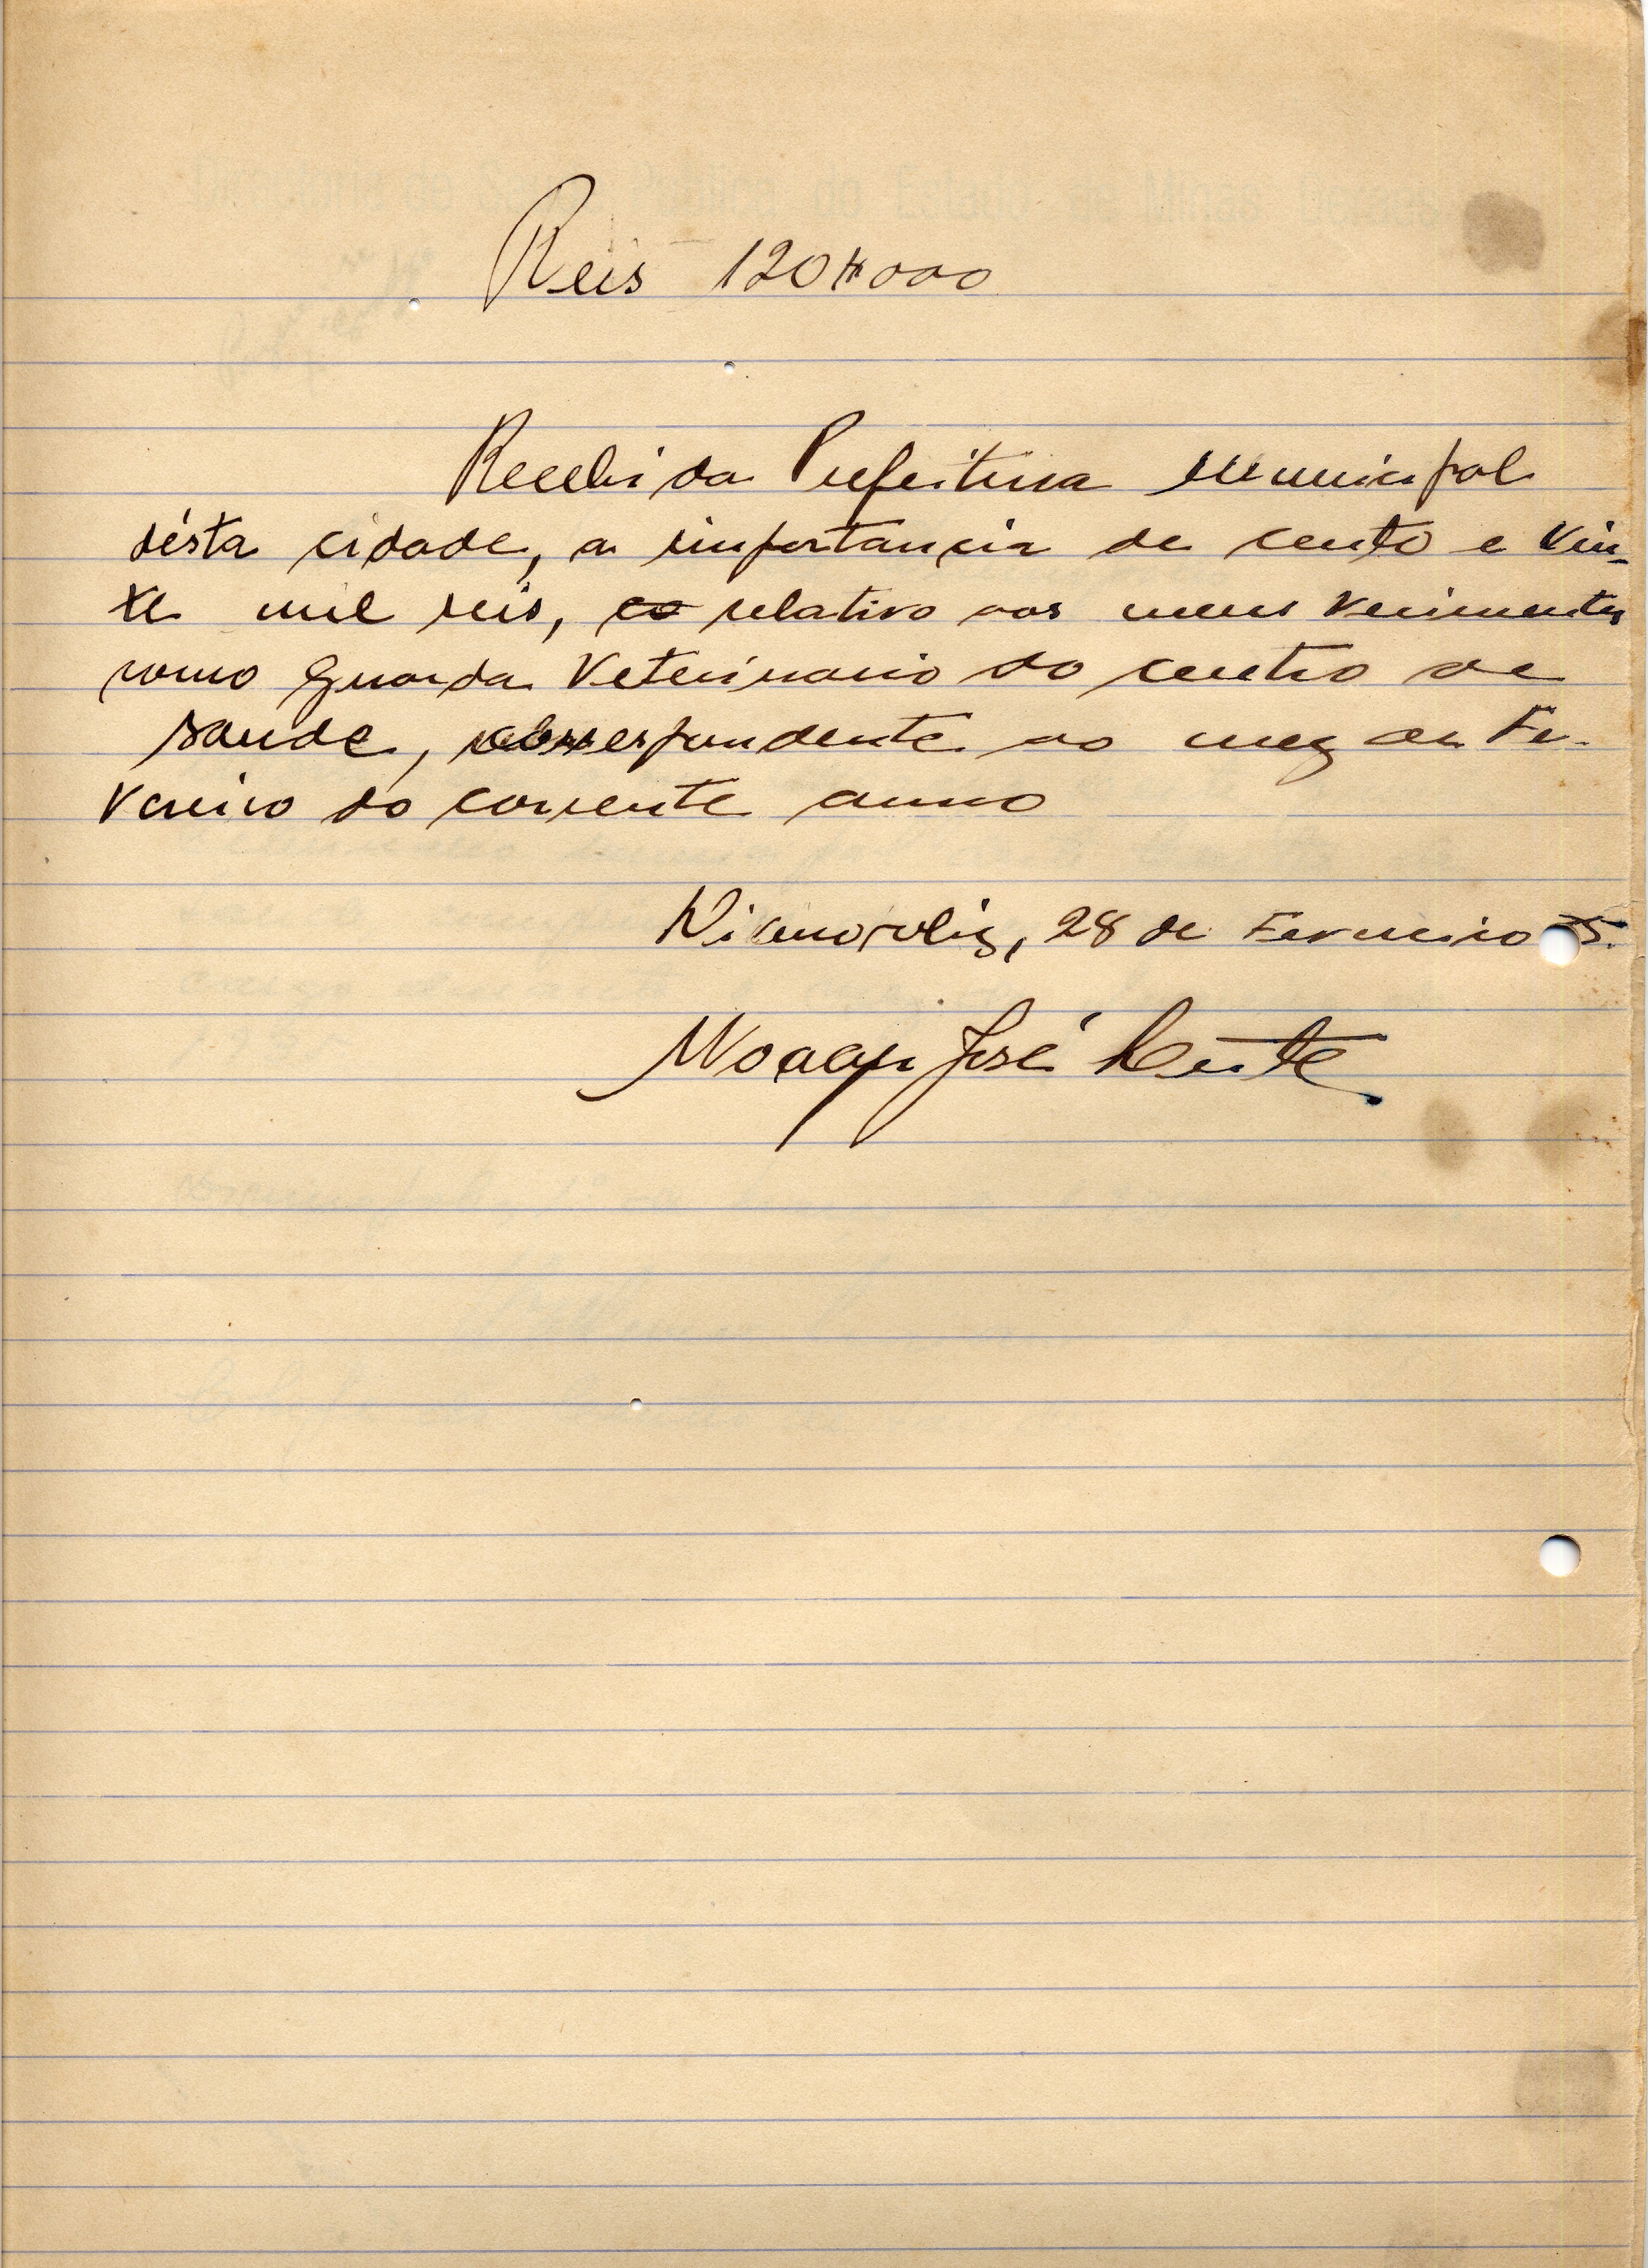 Reis 120$000
Recebi da Prefeitura Municipal
désta cidade, a importancia de cento e vin-
te mil reis, relativo aos meus vencimentos
como Guarda Veterinario do centro de
saude, correspondente ao mez de Fe-
vereiro do corrente anno
28 de Fevereiro
José